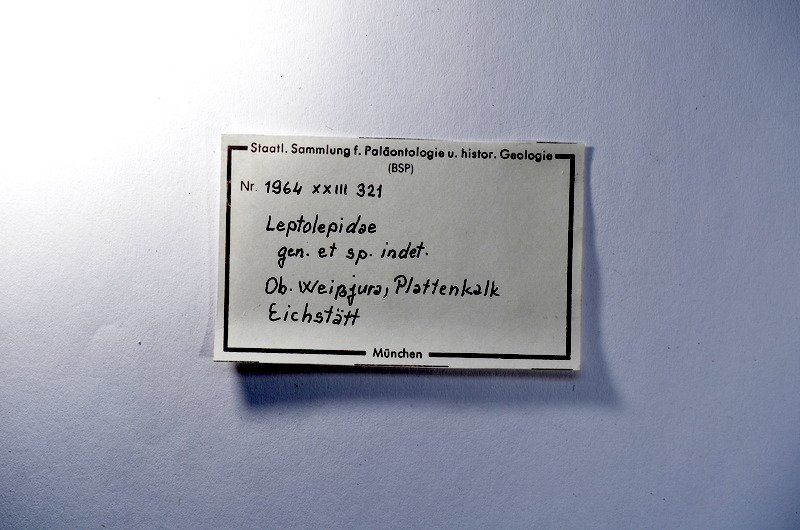 Staatl. Sammlung f. Paläontologie u. histor. Geologie
(BSP)
Nr. 1964 XXIII 321
Leptolepidae
gen. et sp. indet.
Ob. Weißjura, Plattenkalk
Eichstätt
München